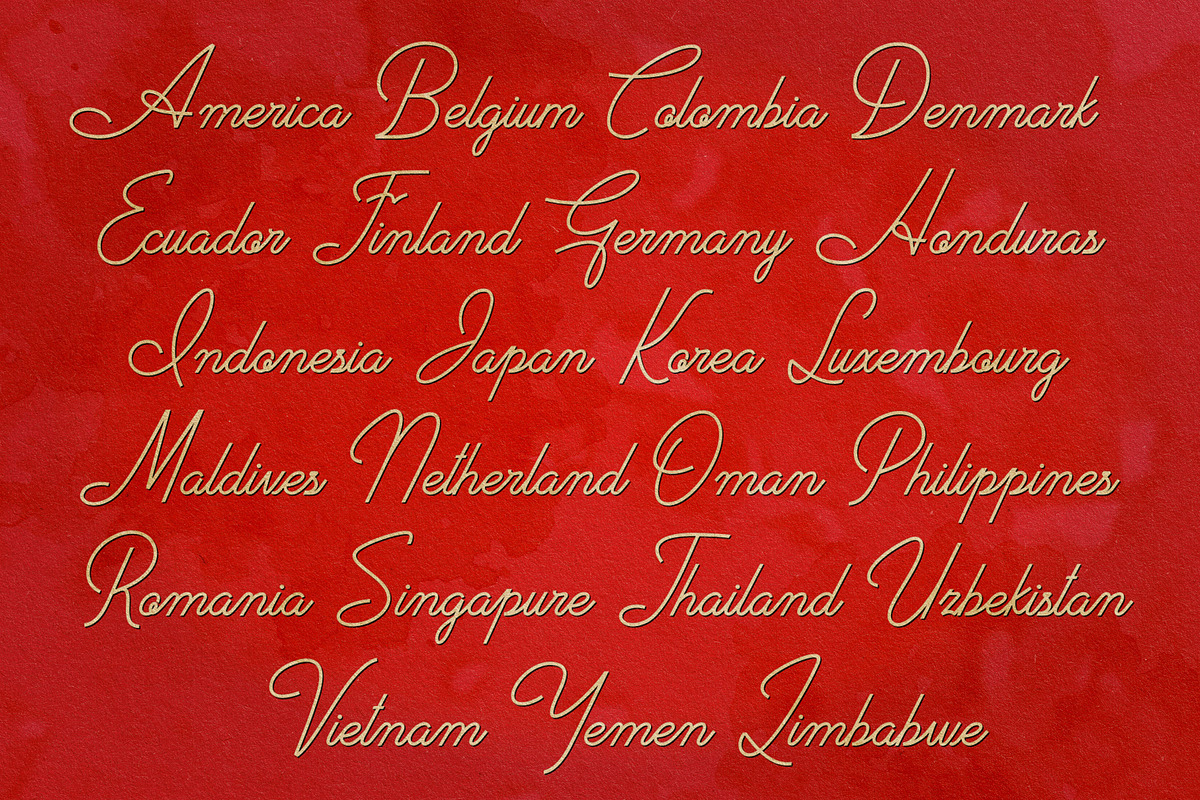 America Belgium Colombia Denmark
Ecuador Finland Germany Honduras
Indonesia Japan Korea Luxembourg
Maldives Netherland Oman Philippines
Romania Singapure Thailand Uzbekistan
Vietnam Yemen Zimbabwe